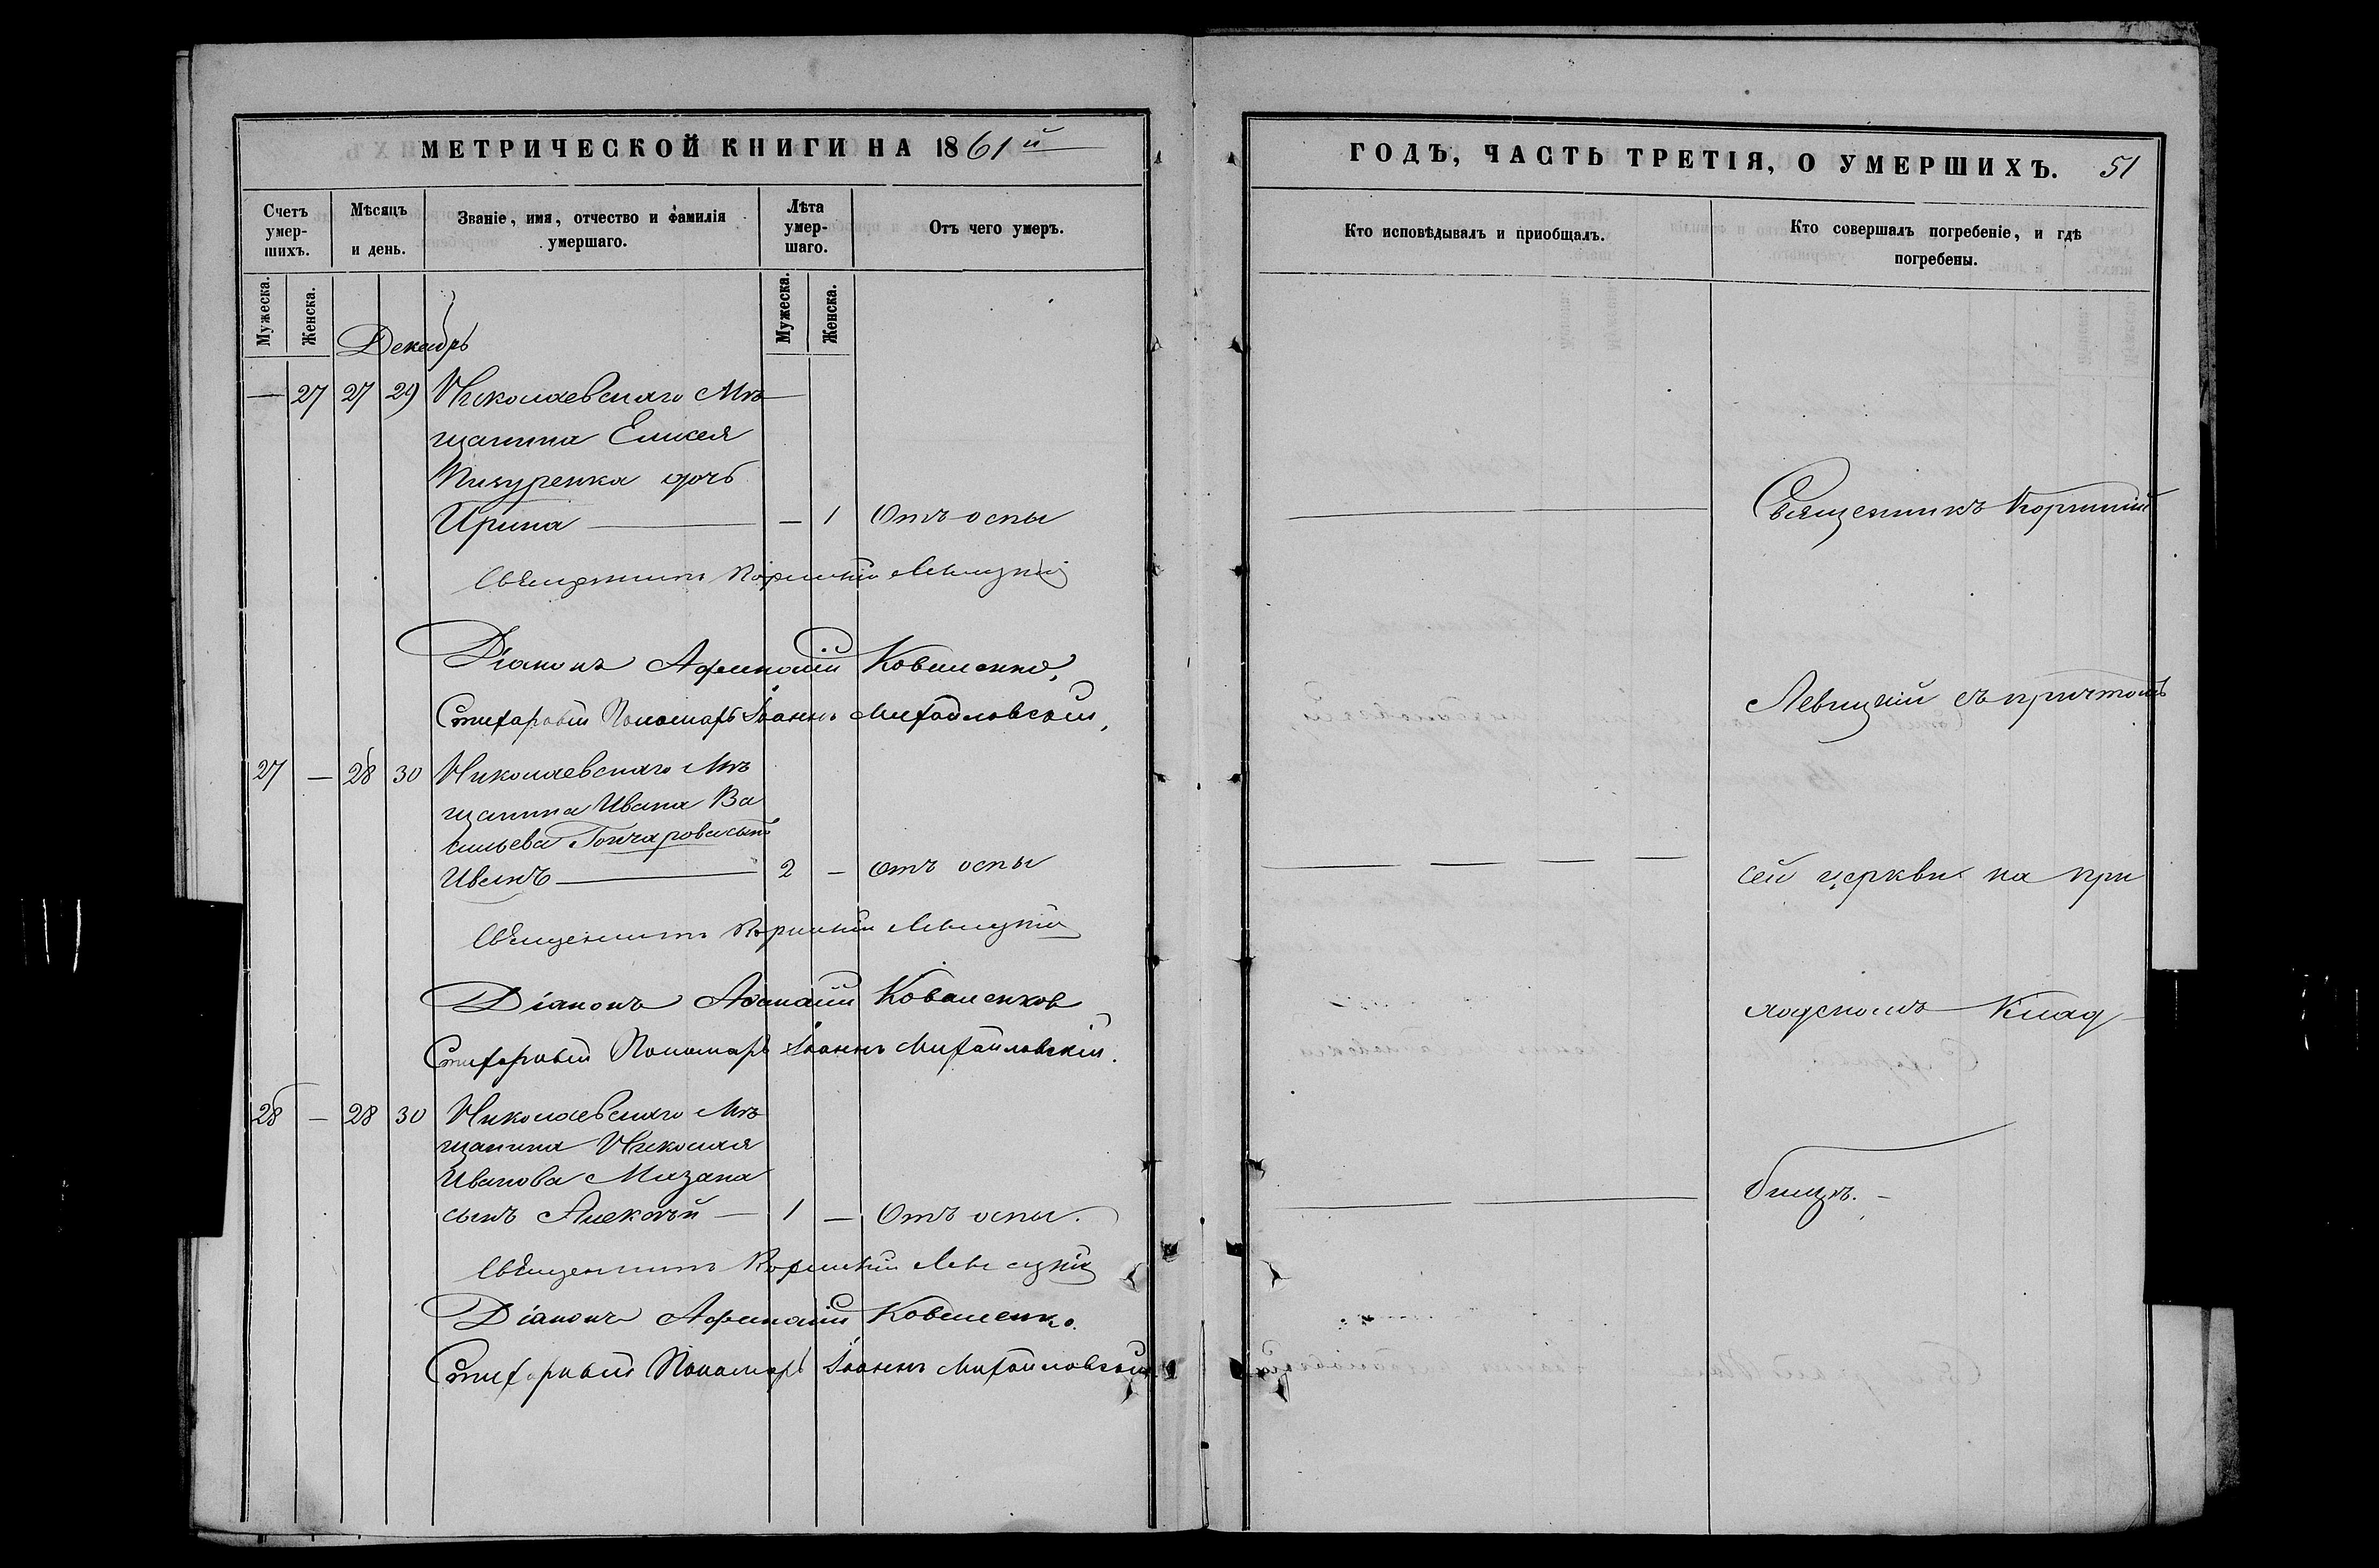 МЕТРИЧЕСКОЙ КНИГИ НА 1861й
Счетъ умер-шихъ.
Мѣсяцъ и день.
Званіе, имя, отчество и фамилія умершаго.
Лѣта умер-шаго.
Отъ чего умеръ.
Мужеска.
Женска.
Мужеска.
Женска.
Декабрь
— 27 27 29 Николаевскаго Мѣ
щанина Елисея
Пичуренка дочь
Ирина — — 1 Отъ оспы
Священникъ Корнилій Левицкій
Діаконъ Афанасій Коваленко,
Стихарный Пономарь Іоаннъ Михайловскій,
27 — 28 30 Николаевскаго Мѣ
щанина Ивана Ва
сильева Гончарова сынъ
Иванъ — 2 — отъ оспы
Священникъ Корнилій Левицкій
Діаконъ Афанасій Коваленков
Стихарный Пономарь Іоаннъ Михайловскій.
28 — 28 30 Николаевскаго Мѣ
щанина Николая
Иванова Мазана
сынъ Алексѣй — 1 — Отъ оспы.
Священникъ Корнилій Левицкій
Діаконъ Афанасій Коваленко.
Стихарный Пономарь Іоаннъ Михайловскій
ГОДЪ, ЧАСТЬ ТРЕТІЯ, О УМЕРШИХЪ. 51
Кто исповѣдывалъ и пріобщалъ.
Кто совершалъ погребеніе, и гдѣ погребены.
Священникъ Корнилій
Левицкій съ причтомъ
сей церкви на при
ходскомъ Клад
бищѣ.